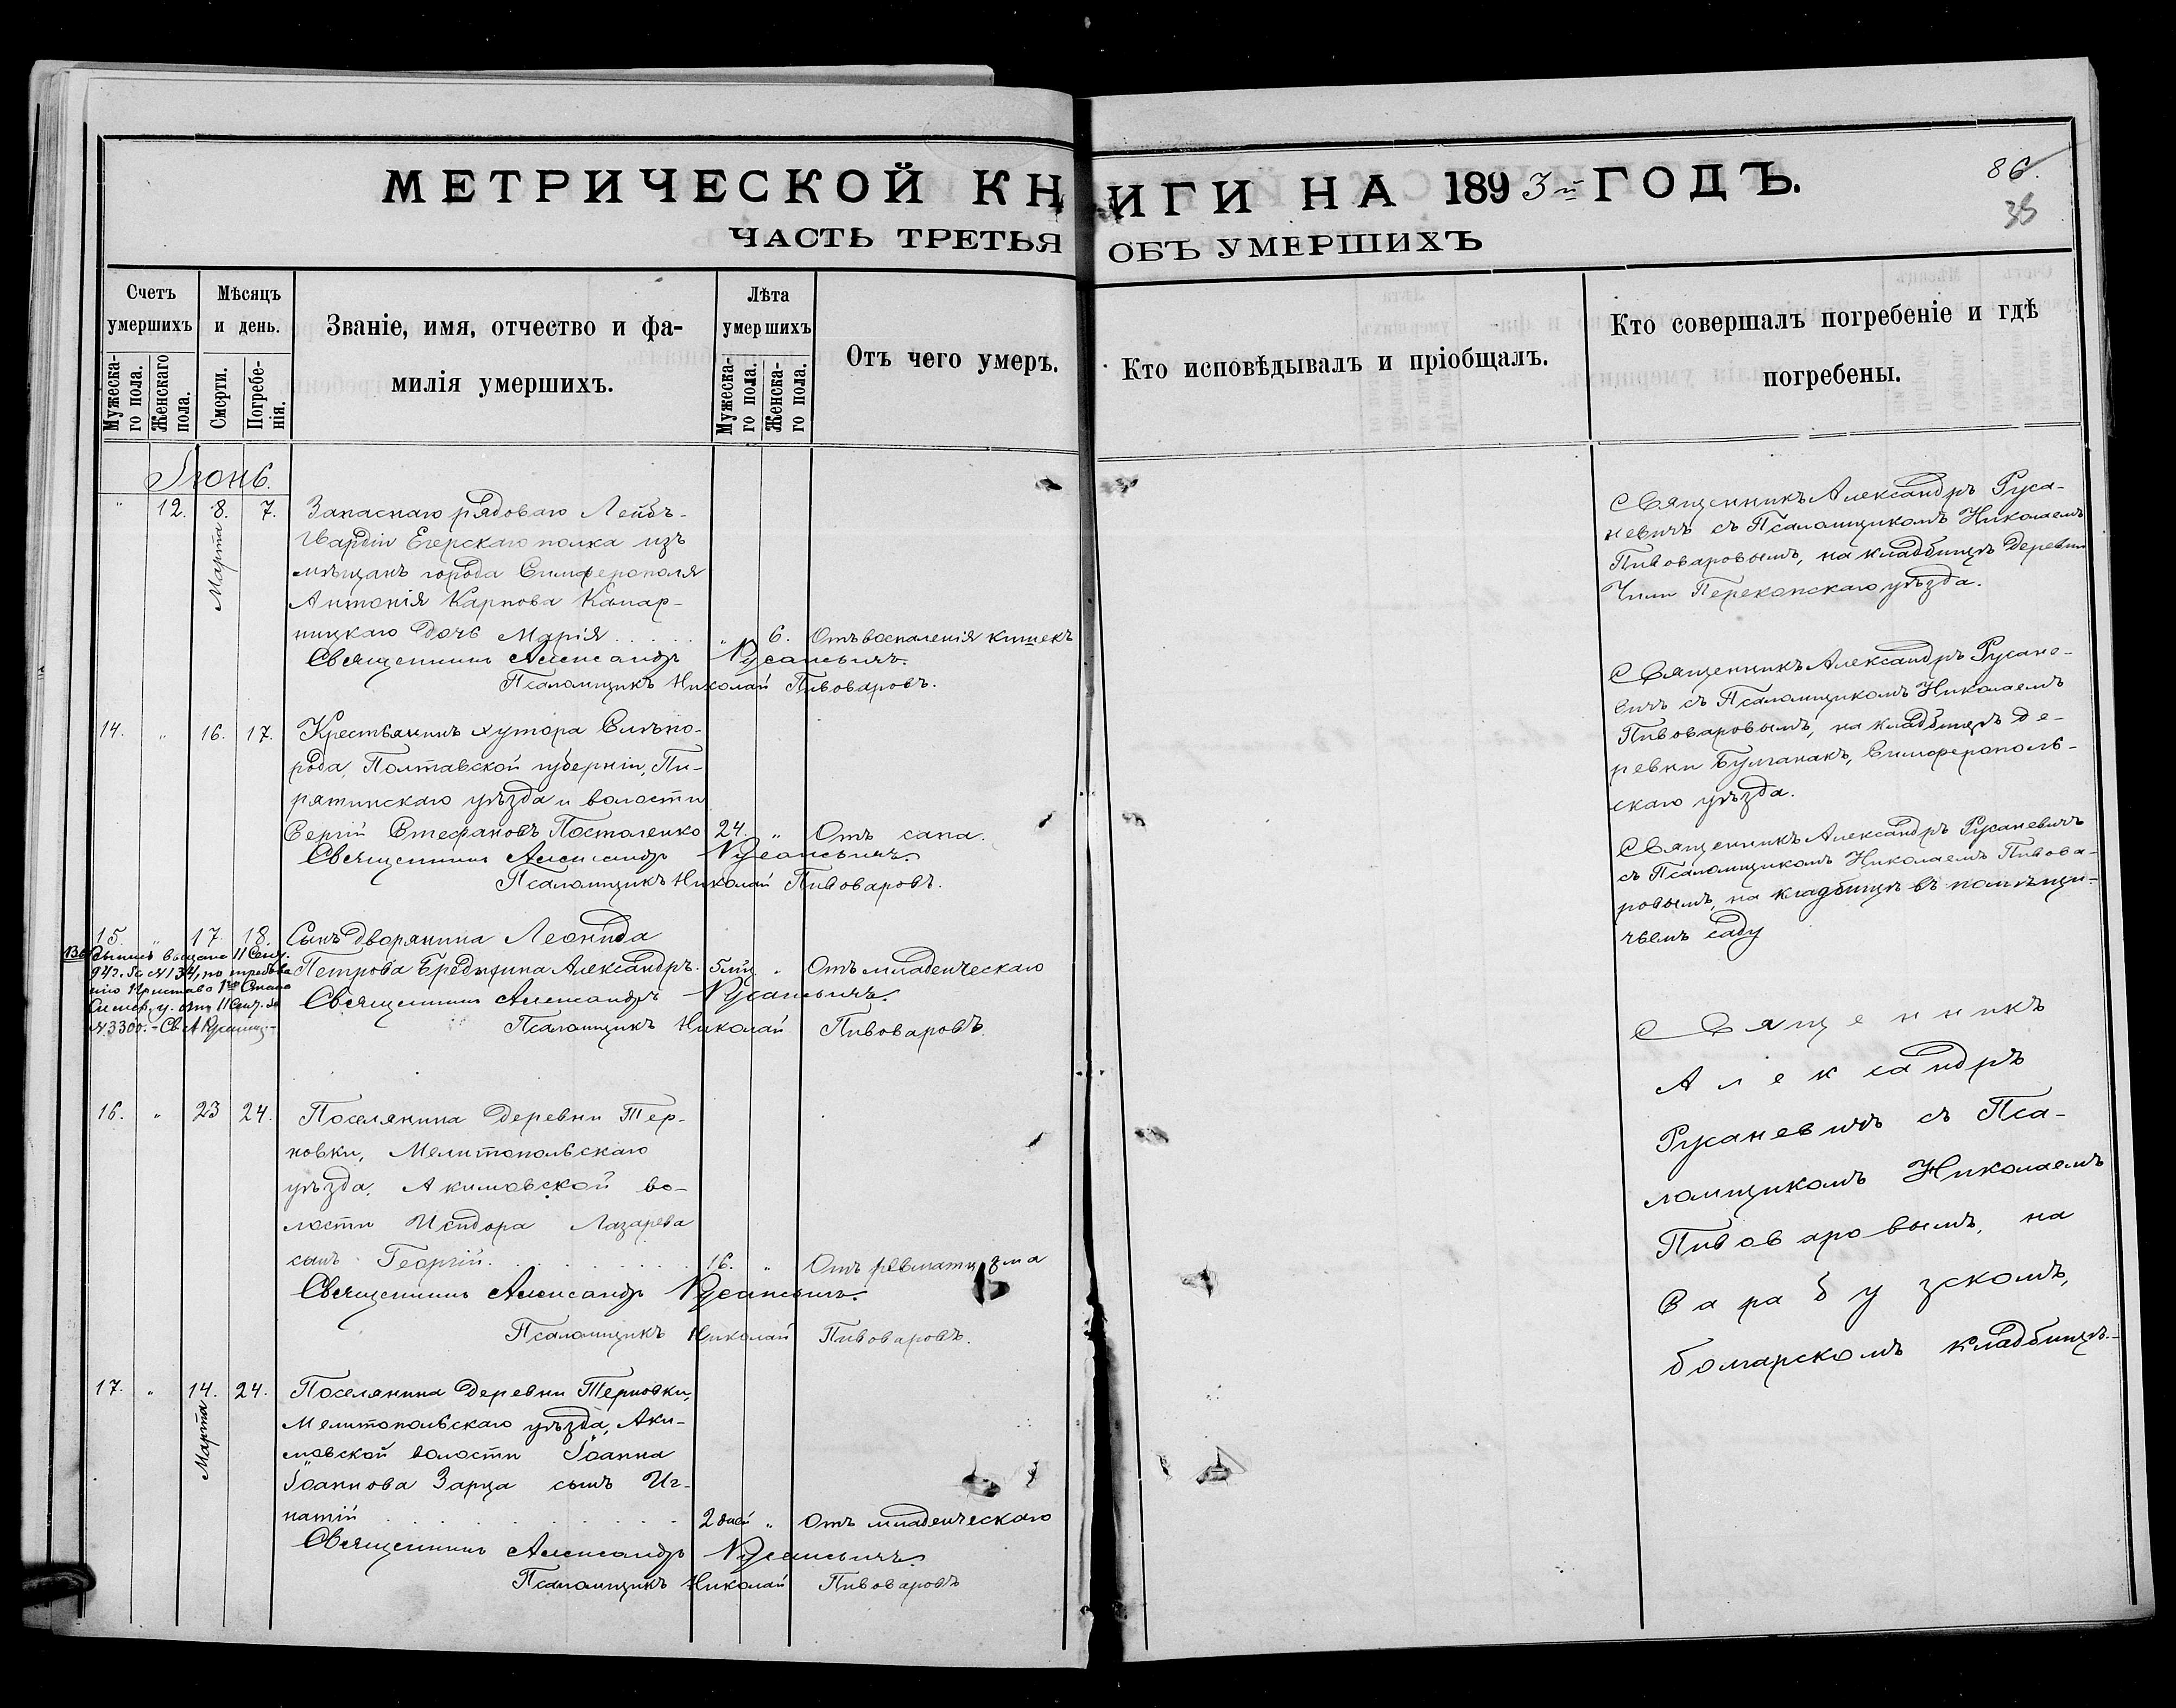 МЕТРИЧЕСКОЙ КНИГИ НА 1893й ГОДЪ.
86.
38
ЧАСТЬ ТРЕТЬЯ ОБЪ УМЕРШИХЪ
Счетъ умершихъ
Мѣсяцъ и день.
Званіе, имя, отчество и фа-
милія умершихъ.
Лѣта умершихъ
Отъ чего умеръ.
Кто исповѣдывалъ и пріобщалъ.
Кто совершалъ погребеніе и гдѣ
погребены.
Мужеска-
го пола.
Женскаго
пола.
Смерти.
Погребе-
нія.
Мужеска-
го пола.
Женска-
го пола.
Іюнь.
" 12. 8. Марта 7. Запаснаго рядоваго Лейбъ-
Гвардіи Егерскаго полка изъ
мѣщанъ города Симферополя
Антонія Карпова
ницкаго дочь Марія . . . . . " 6. Отъ воспаленія кишекъ
Священникъ Александръ Русаневичъ.
Псаломщикъ Николай Пивоваровъ.
Священникъ Александръ Руса-
невичъ съ Псаломщикомъ Николаемъ
Пивоваровымъ, на кладбищѣ деревни
Перекопскаго уѣзда.
14. " 16. 17. Крестьянинъ хутора Слѣпо-
рода, Полтавской губерніи, Пи-
рятинскаго уѣзда и волости
Сергій Стефановъ Постоленко 24. " Отъ сапа.
Священникъ Александръ Русаневичъ.
Псаломщикъ Николай Пивоваровъ.
Священникъ Александръ Русане-
вичъ съ Псаломщикомъ Николаемъ
Пивоваровымъ, на кладбищѣ де-
ревни Булганакъ, Симферополь-
скаго уѣзда.
15. " 17 18. Сынъ дворянина Леонида
Петрова Бредихина Александръ. 5 мѣс. " Отъ младенческаго
Священникъ Александръ Русаневичъ.
Псаломщикъ Николай Пивоваровъ.
Выпись выдана 11 Сент.
94 г. за № 134, по требова
нію Пристава 1го Стана
Симф. у. отъ 11 Сент. за
№ 3300. - Св. А Русаневич-
Священникъ Александръ Русаневичъ
съ Псаломщикомъ Николаемъ Пивова-
ровымъ, на кладбищѣ въ помѣщи-
чьемъ саду
16. " 23 24. Поселянина деревни Тер-
новки, Мелитопольскаго
уѣзда, Акимовской во-
лости Исидора Лазарева
сынъ Георгій. . . . . . . . 16. " Отъ ревматизма
Священникъ Александръ Русаневичъ.
Псаломщикъ Николай Пивоваровъ.
Священникъ
Александръ
Русаневичъ съ Пса-
ломщикомъ Николаемъ
Пивоваровымъ, на
Сарабузскомъ,
болгарскомъ кладбищѣ.-
17. " 14. Марта 24. Поселянина деревни Терновки,
Мелитопольскаго уѣзда, Аки-
мовской волости Іоанна
Іоаннова Зарца сынъ Иг-
натій . . . . . . . . 2 дней " Отъ младенческаго
Священникъ Александръ Русаневичъ.
Псаломщикъ Николай Пивоваровъ